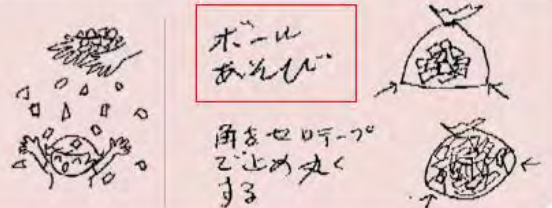 ボール
あそび
角をセロテープ
で止め丸く
する